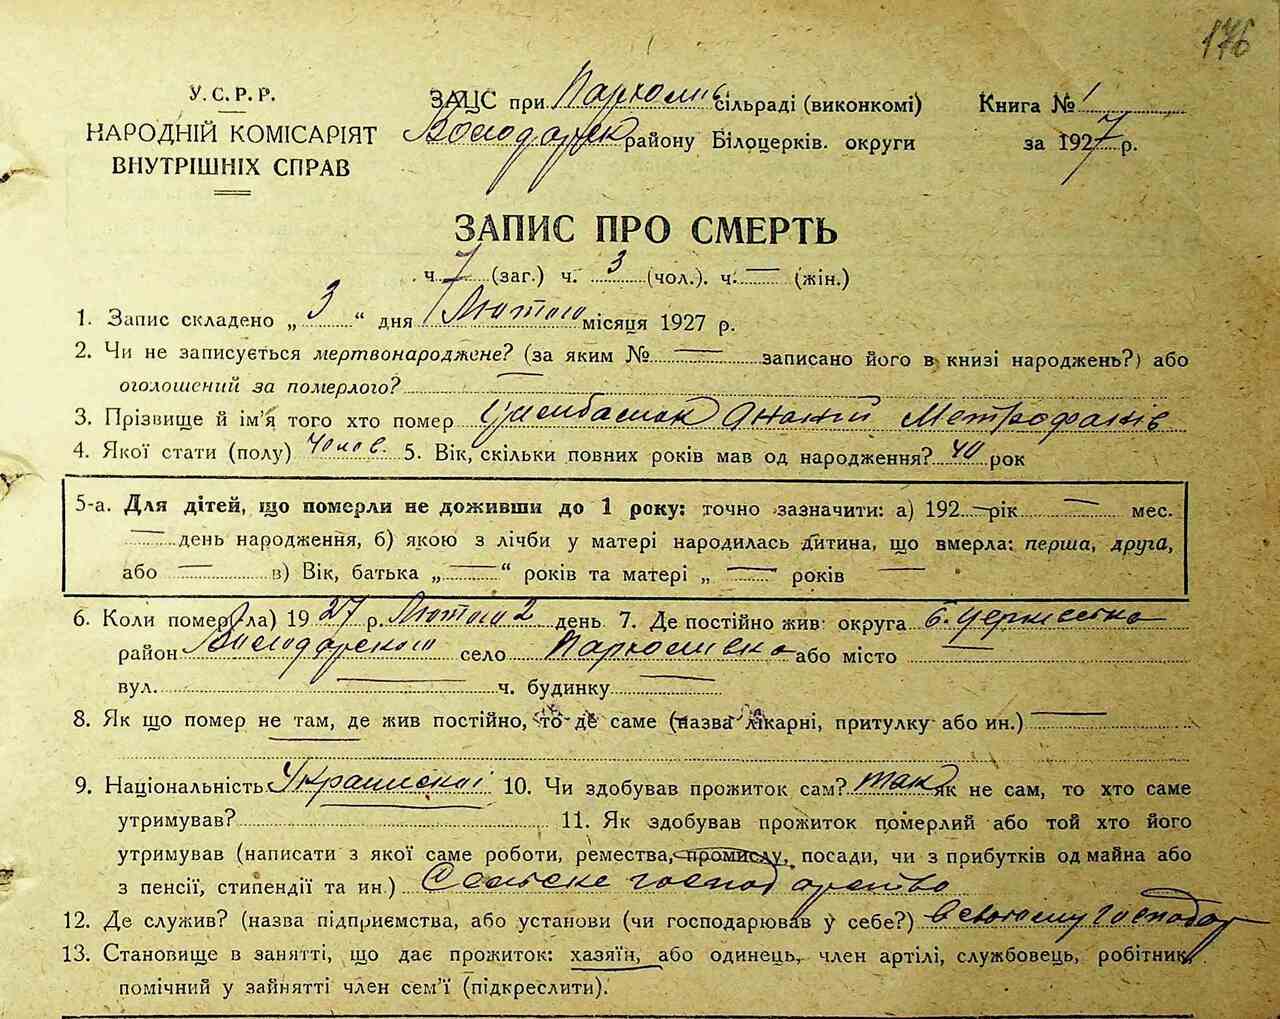 176
У.С.Р.Р.
НАРОДНІЙ КОМІСАРІЯТ
ВНУТРІШНІХ СПРАВ
ЗАЦС при Пархомів сільраді (виконкомі)
Володарск району Білоцерків. округи
Книга № 1
за 1927 р.
ЗАПИС ПРО СМЕРТЬ
ч. 7 (заг.) ч. 3 (чол.). ч. — (жін.)
1. Запис складено „ 3 “ дня Лютого місяця 1927 р.
2. Чи не записується мертвонароджене? (за яким № — записано його в книзі народжень?) або
оголошений за померлого?
3. Прізвище й ім’я того хто помер Цимбалюк Ананій Метрофанів
4. Якої стати (полу) чолов. 5. Вік, скільки повних років мав од народження? 40 рок
5-а. Для дітей, що померли не доживши до 1 року: точно зазначити: а) 192 — рік — мес.
— день народження, б) якою з лічби у матері народилась дитина, що вмерла: перша, друга,
або — в) Вік, батька „ — “ років та матері „ — “ років —
6. Коли помер(ла) 1927 р. Лютого 2 день 7. Де постійно жив: округа Б. Церкевска
район Володарского село Пархомівка або місто —
вул. — ч. будинку —
8. Як що помер не там, де жив постійно, то де саме (назва лікарні, притулку або ин.) —
9. Національність Украінскої 10. Чи здобував прожиток сам? так як не сам, то хто саме
утримував? 11. Як здобував прожиток померлий або той хто його
утримував (написати з якої саме роботи, ремества, промислу, посади, чи з прибутків од майна або
з пенсії, стипендії та ин.) Сельске господарство
12. Де служив? (назва підприємства, або установи (чи господарював у себе?) в своему господар
13. Становище в занятті, що дає прожиток: хазяїн, або одинець, член артілі, службовець, робітник,
помічний у зайнятті член сем’ї (підкреслити).